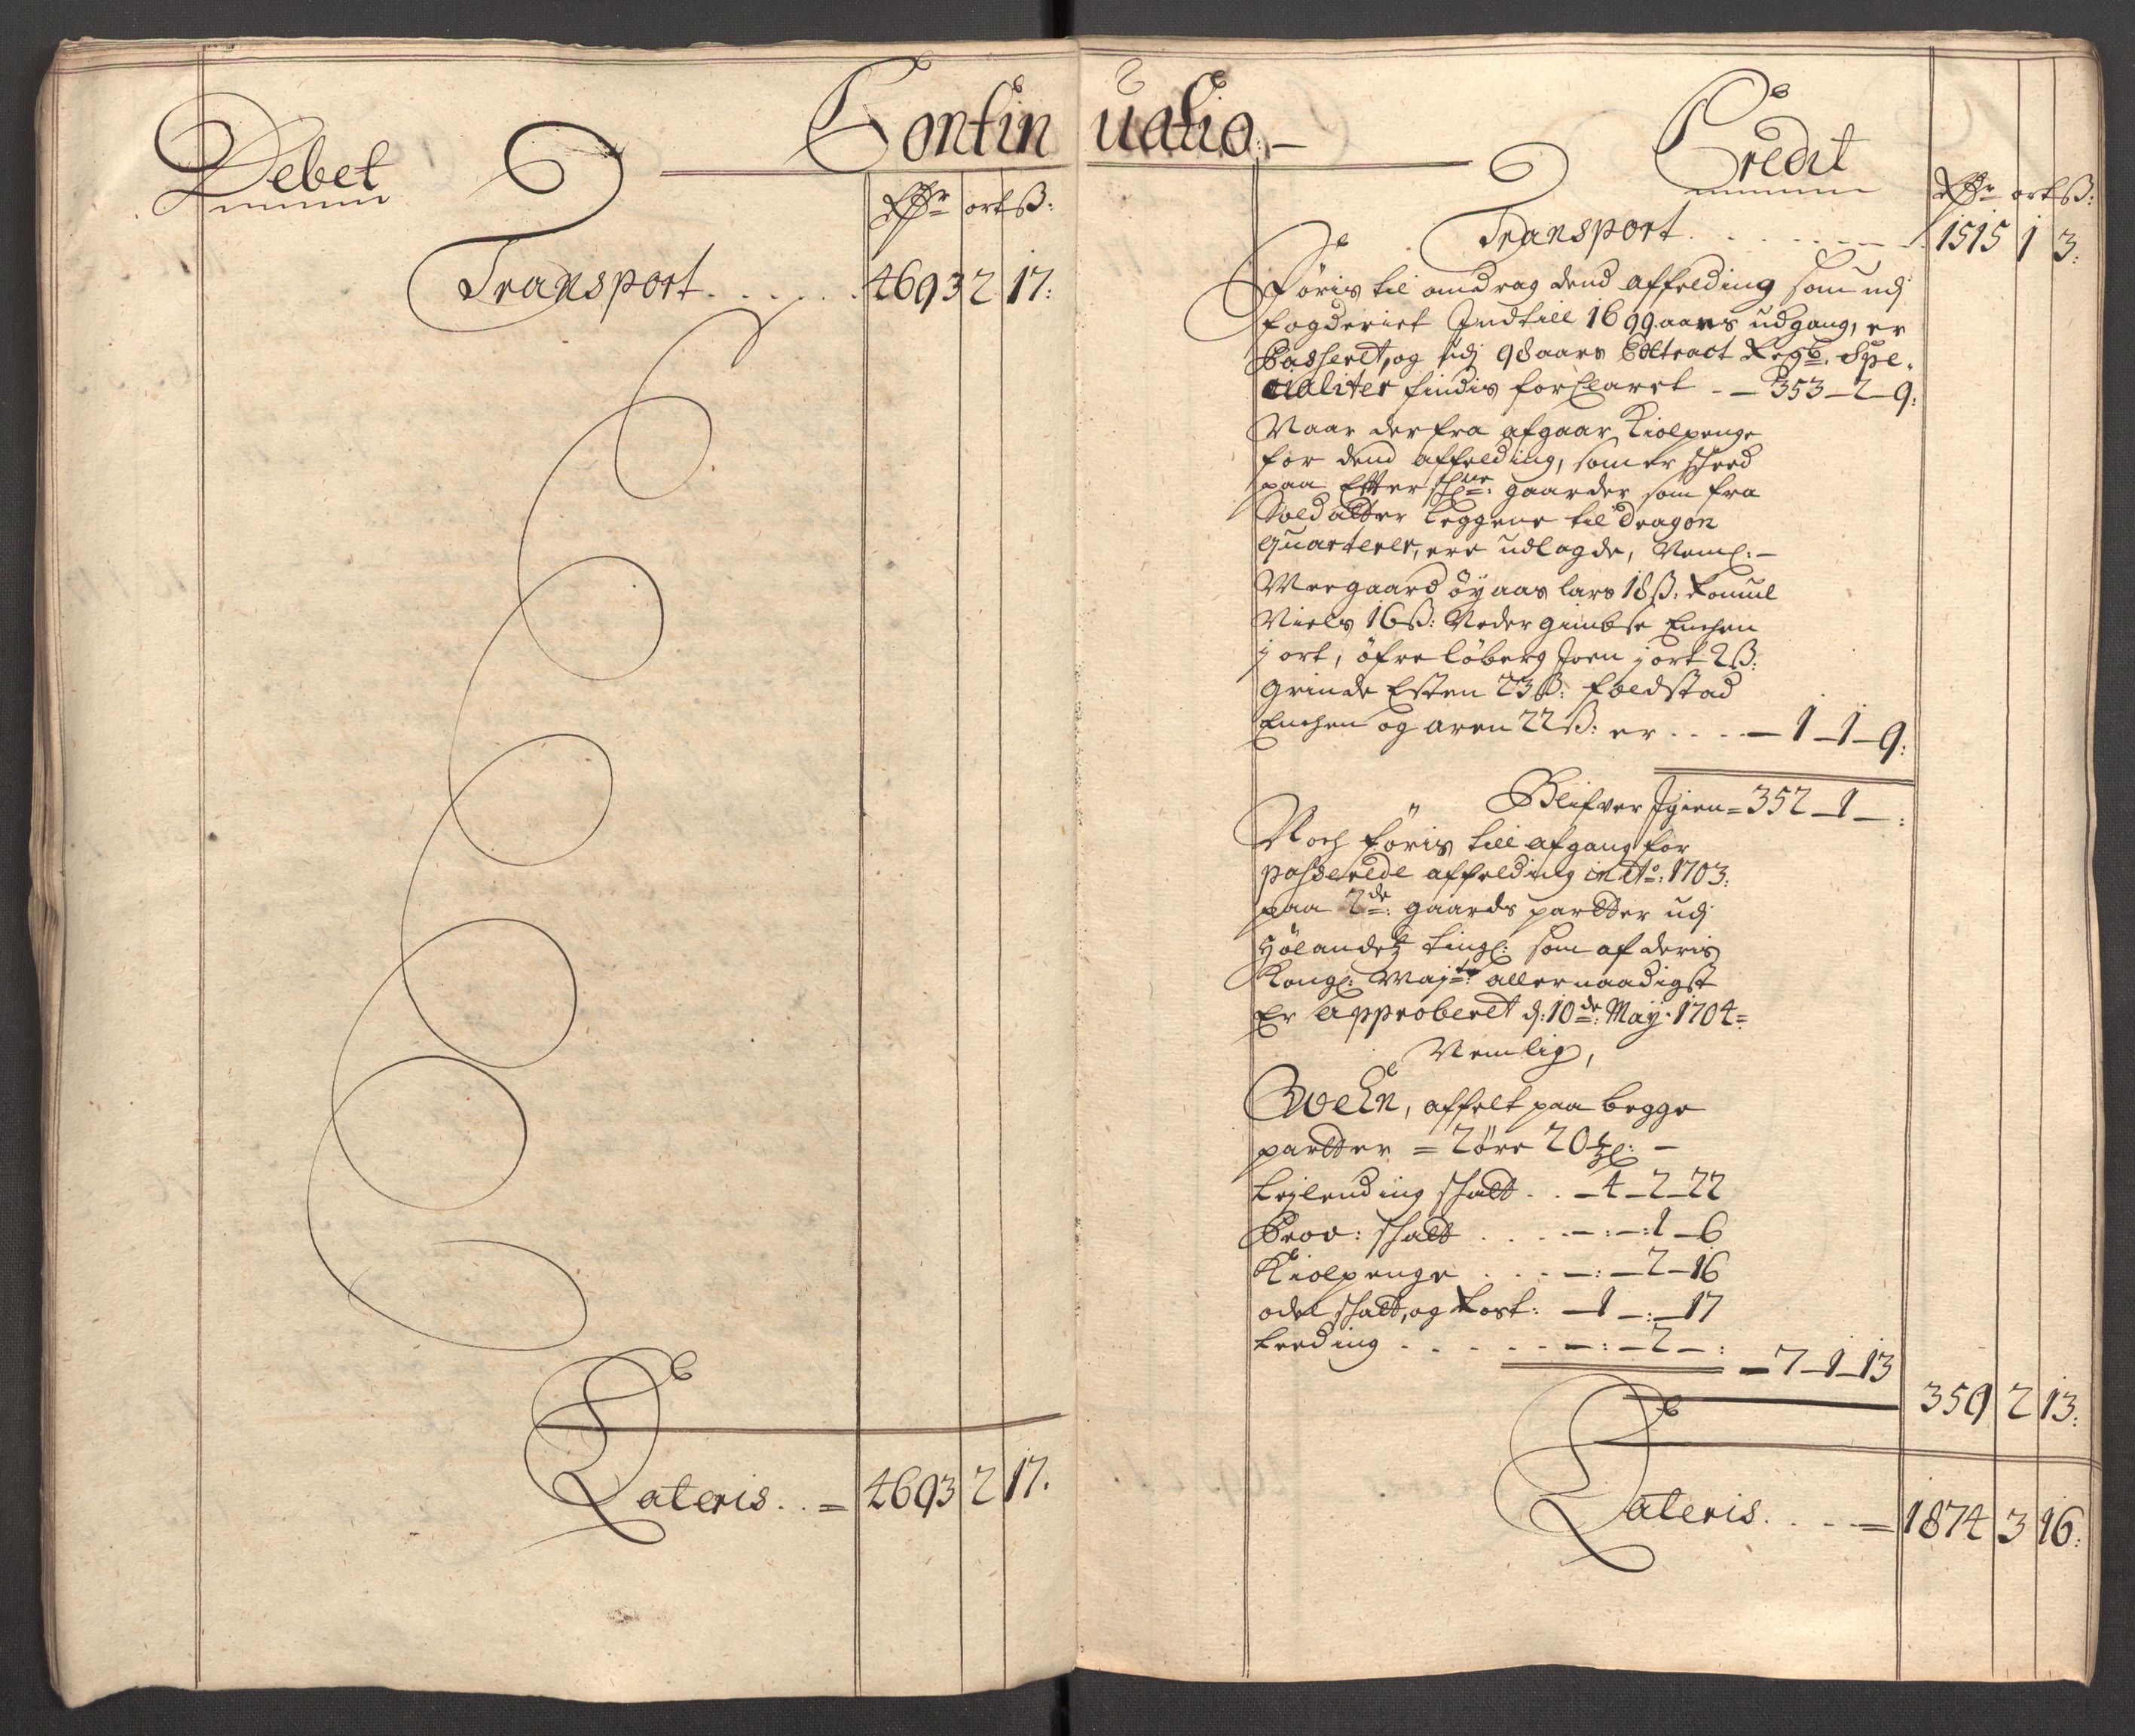 Continuatio.
Debet
Rdr ort ß:
Transport . . . . . . 4693 2 17:
Lateris . . = 4693 2 17.
Credit
Rdr ort ß:
Transport . . . . . . 1515 1 3:
Føris til andrag dend affelding som udj
fogderiet Indtill 1699 aars udgang, er
Passeret, og udj 98 aars Extract Regb. Spe-
cialiter findis forklaret - - 353 - 2 - 9:
Naar der fra afgaar Kiolpenge
for dend affelding, som er skeed
paa Efterschne: gaarder som fra
Soldatter leggene til Dragon
quarterer, ere udlagde, Neml: -
Meegaard öyaas lars 18 ß: Romul
Niels 16 ß: Neder gimbse Enchen
j ort, öfre löberg Joen j ort 2 ß:
Grinde Esten 23 ß: foldstad
Enchen og aren 22 ß: er . . . . - 1 - 1 - 9:
Blifver Igien = 352 - 1 - :
Noch föris till afgang for
passerede affelding in Ao: 1703:
paa 2de: gaards partter udj
Hölandetz tingl: som af deris
Kongl: Majtt: allernaadigst
Er approberet d: 10de: Maÿ 1704 =
Nemlig,
Qveln, affelt paa begge
partter = 2 öre 20 : -
Leylending skatt . . - 4 - 2 - 22
Prov: skatt . . . . - : - : 1 - 6
Kiolpenge . . . - : - 2 - 16
odel skatt, og kost: - 1 - : - 17
Leeding . . . . . - : - 2 - :
- 7 - 1 - 13
359 2 13:
Lateris . . . . = 1874 3 16: